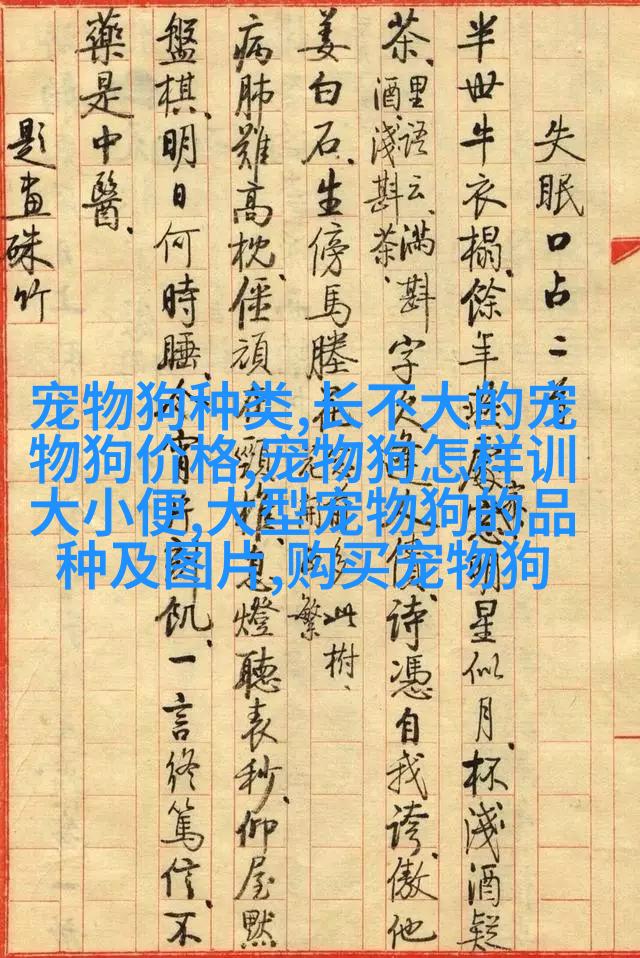 失眠口占二
半世牛衣榻、餘年明星似月、杯淺酒疑
茶、里語云、滿斟酒、淺斟茶、字欠人債、詩憑自我誇、傲他
姜白石、生傍馬塍花多此樹、
病肺難高枕、僵頑頸椎、息燈聽表秒、仰屋默
盤棋、明日何時睡、宵飢、一言終篤信、不
藥是中醫、
題畫硃竹
宠物狗种类,长不大的宠
物狗价格,宠物狗怎样训
大小便,大型宠物狗的品
种及图片,购买宠物狗